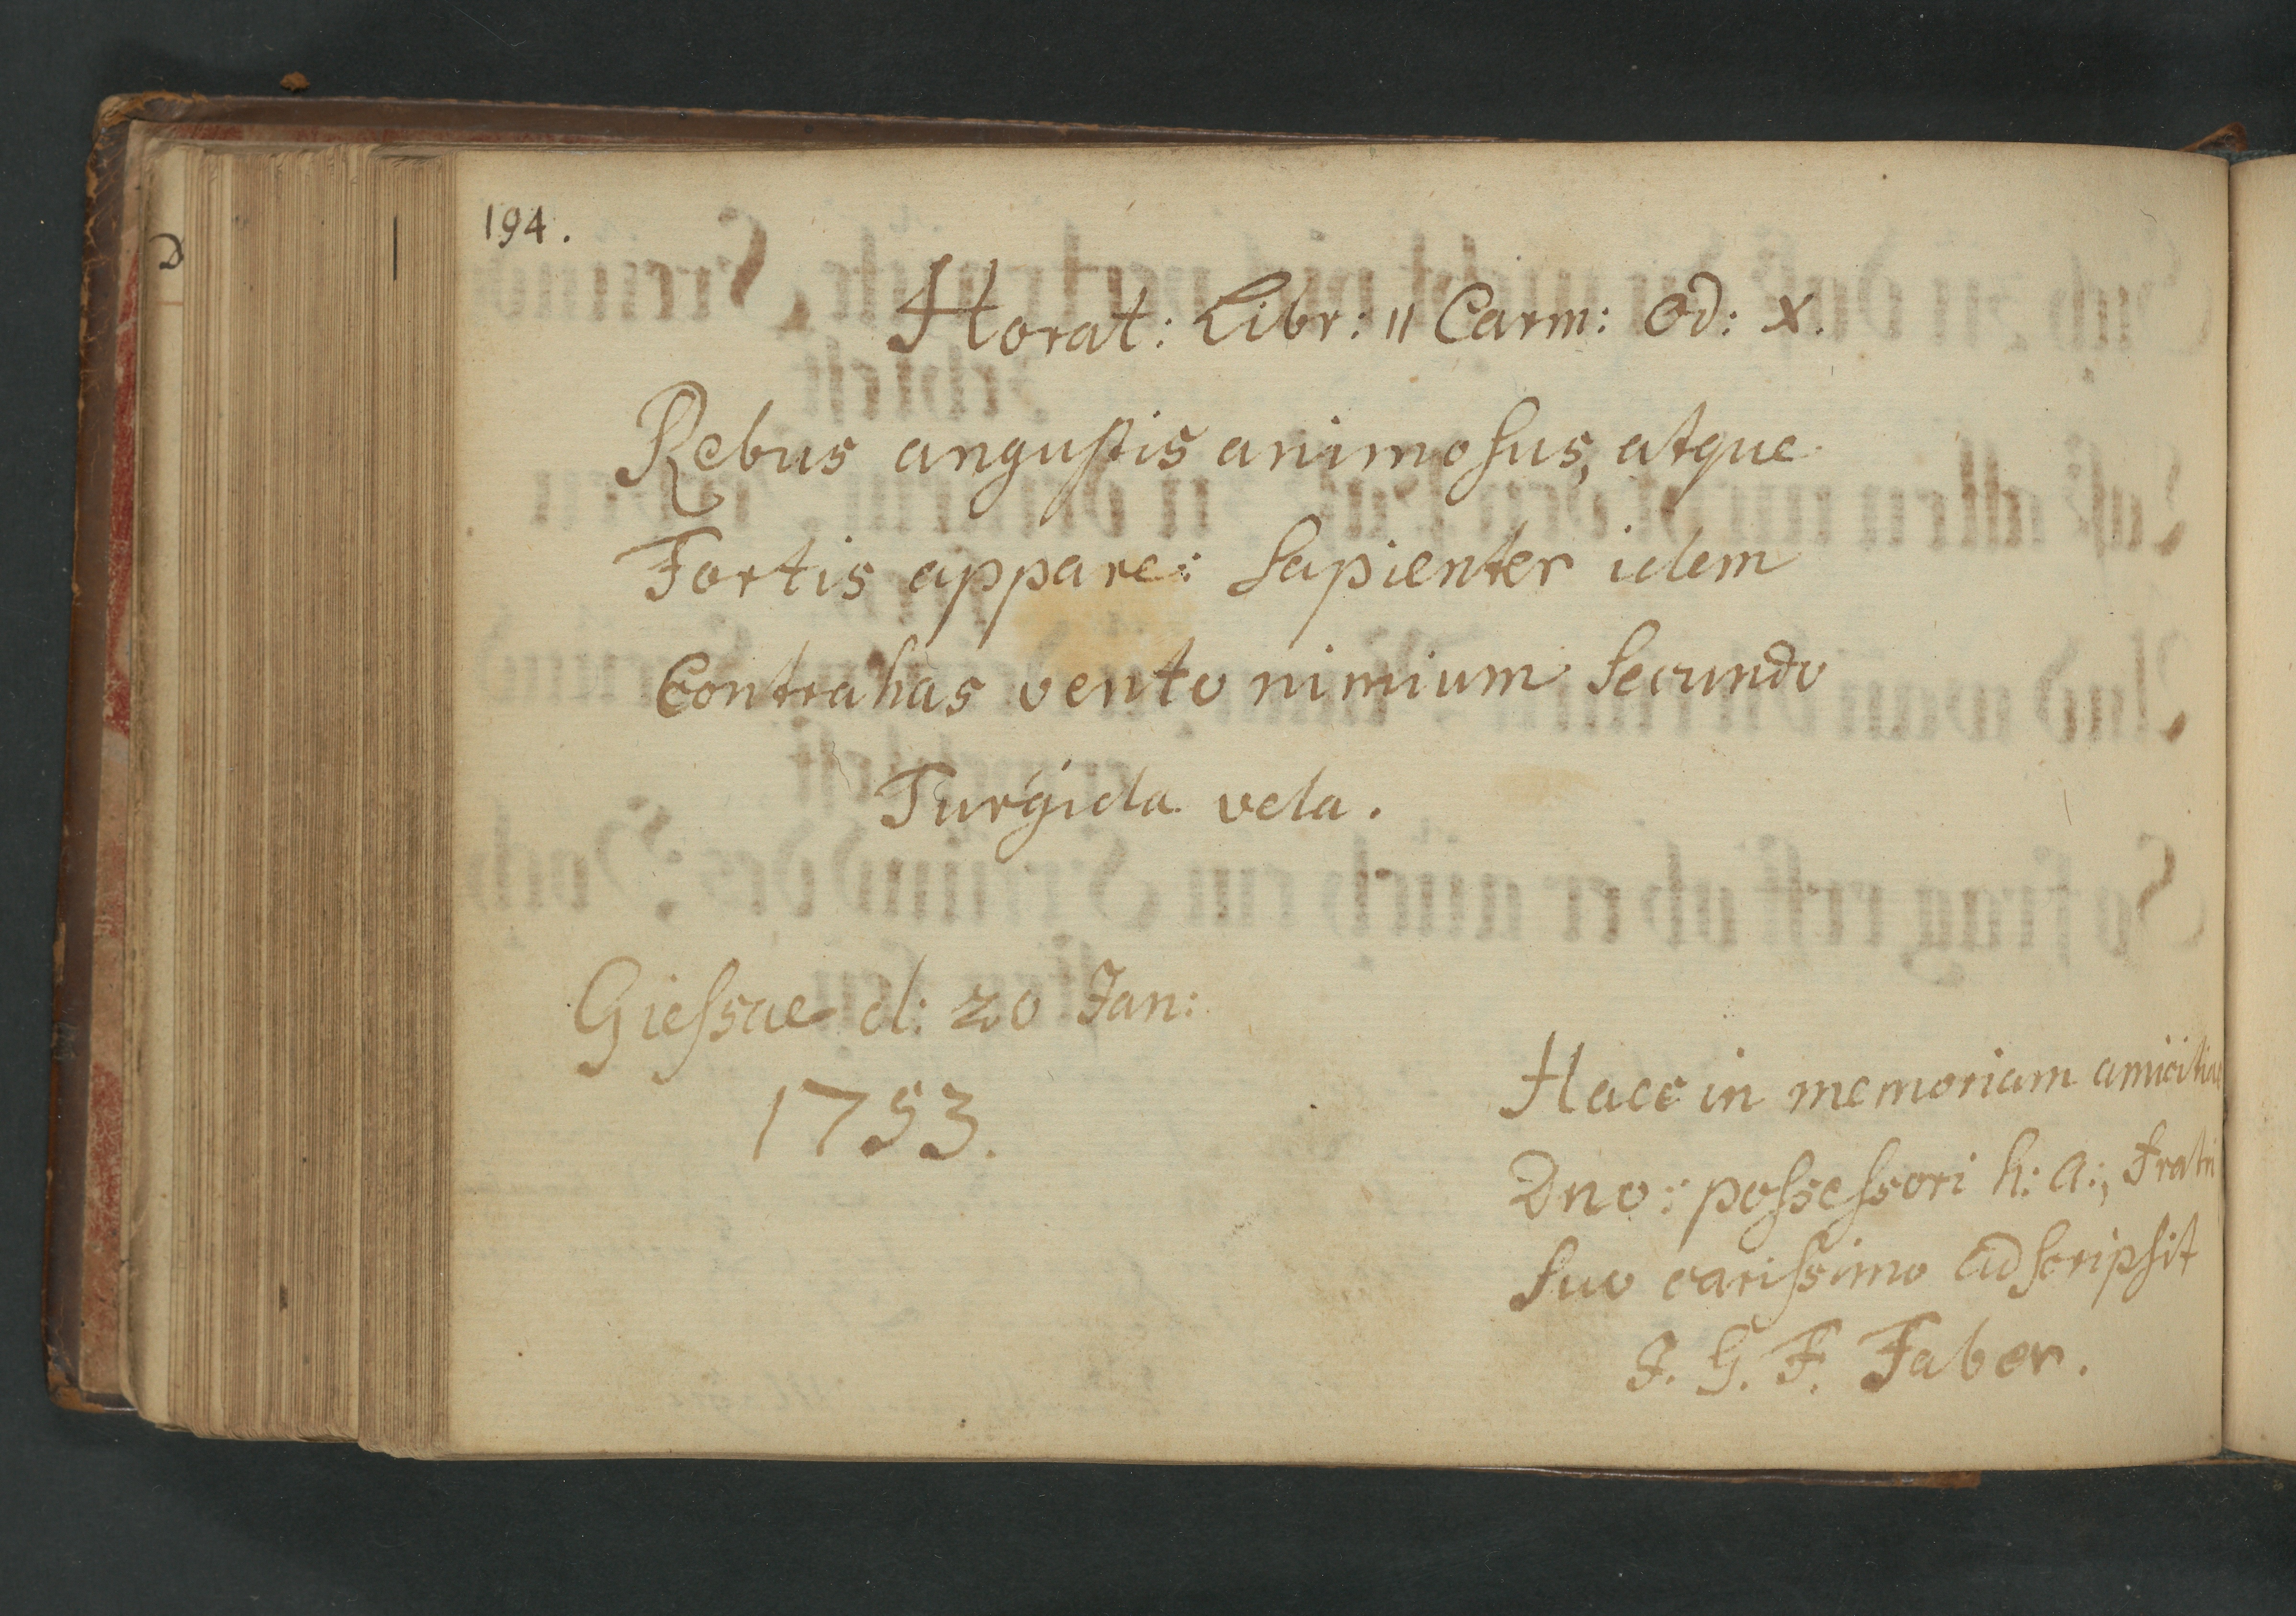 194.
Horat: Libr: II Carm: Od: X.
Rebus angustis animosus, atque
Fortis appare: Sapienter idem
Contrahas vento nimium Secundo
Turgida vela.
Giessae d: 20 Jan:
1753.
Haec in memoriam amicitiae
Dno: possessori h: a:, Fratri
Suo carissimo adscripsit
J. G. F. Faber.